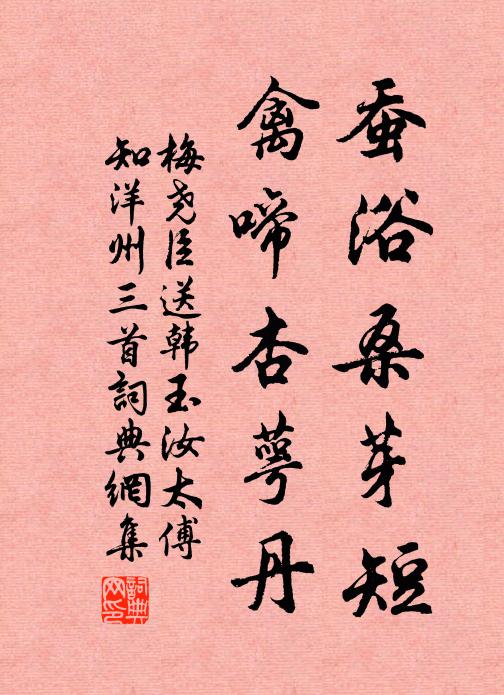 蚕浴桑芽短
禽啼杏萼丹
梅尧臣送韩玉汝太傅
知洋州三首詞典網集
詞典
网印